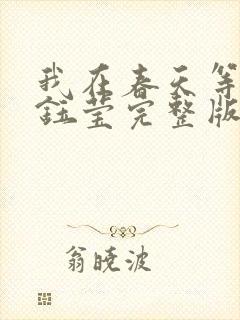 我在春天等
钰莹完整版
翁晓波